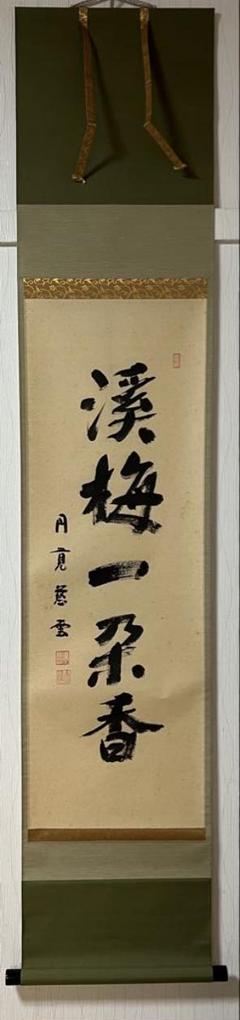 溪梅一朶香
円覚慈雲